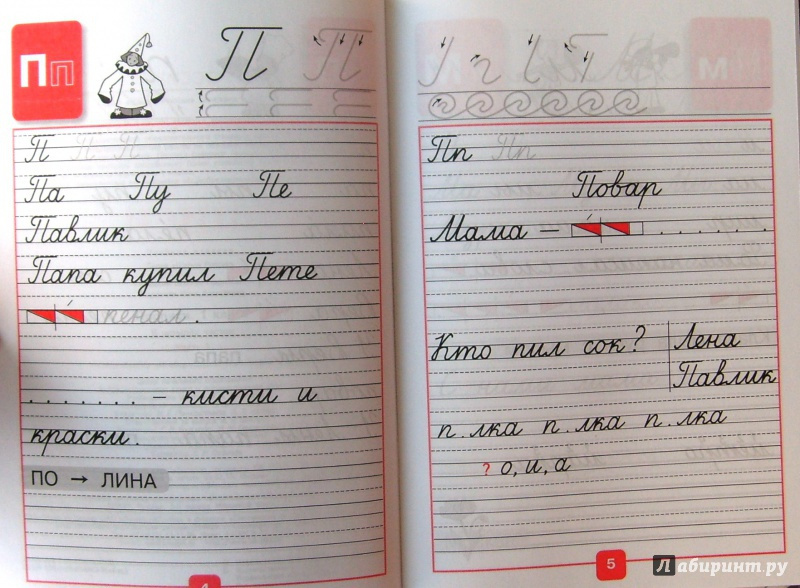 Пп
П П
П
Па Пу Пе
Павлик
Папа купил Пете
пенал.
. . . . . . . – кисти и
краски.
ПО → ЛИНА
4
Пп Пп
Повар
Мама – . . . . . . .
Кто пил сок? Лена
Павлик
п.лка п.лка п.лка
? о, и, а
5
Лабиринт.ру